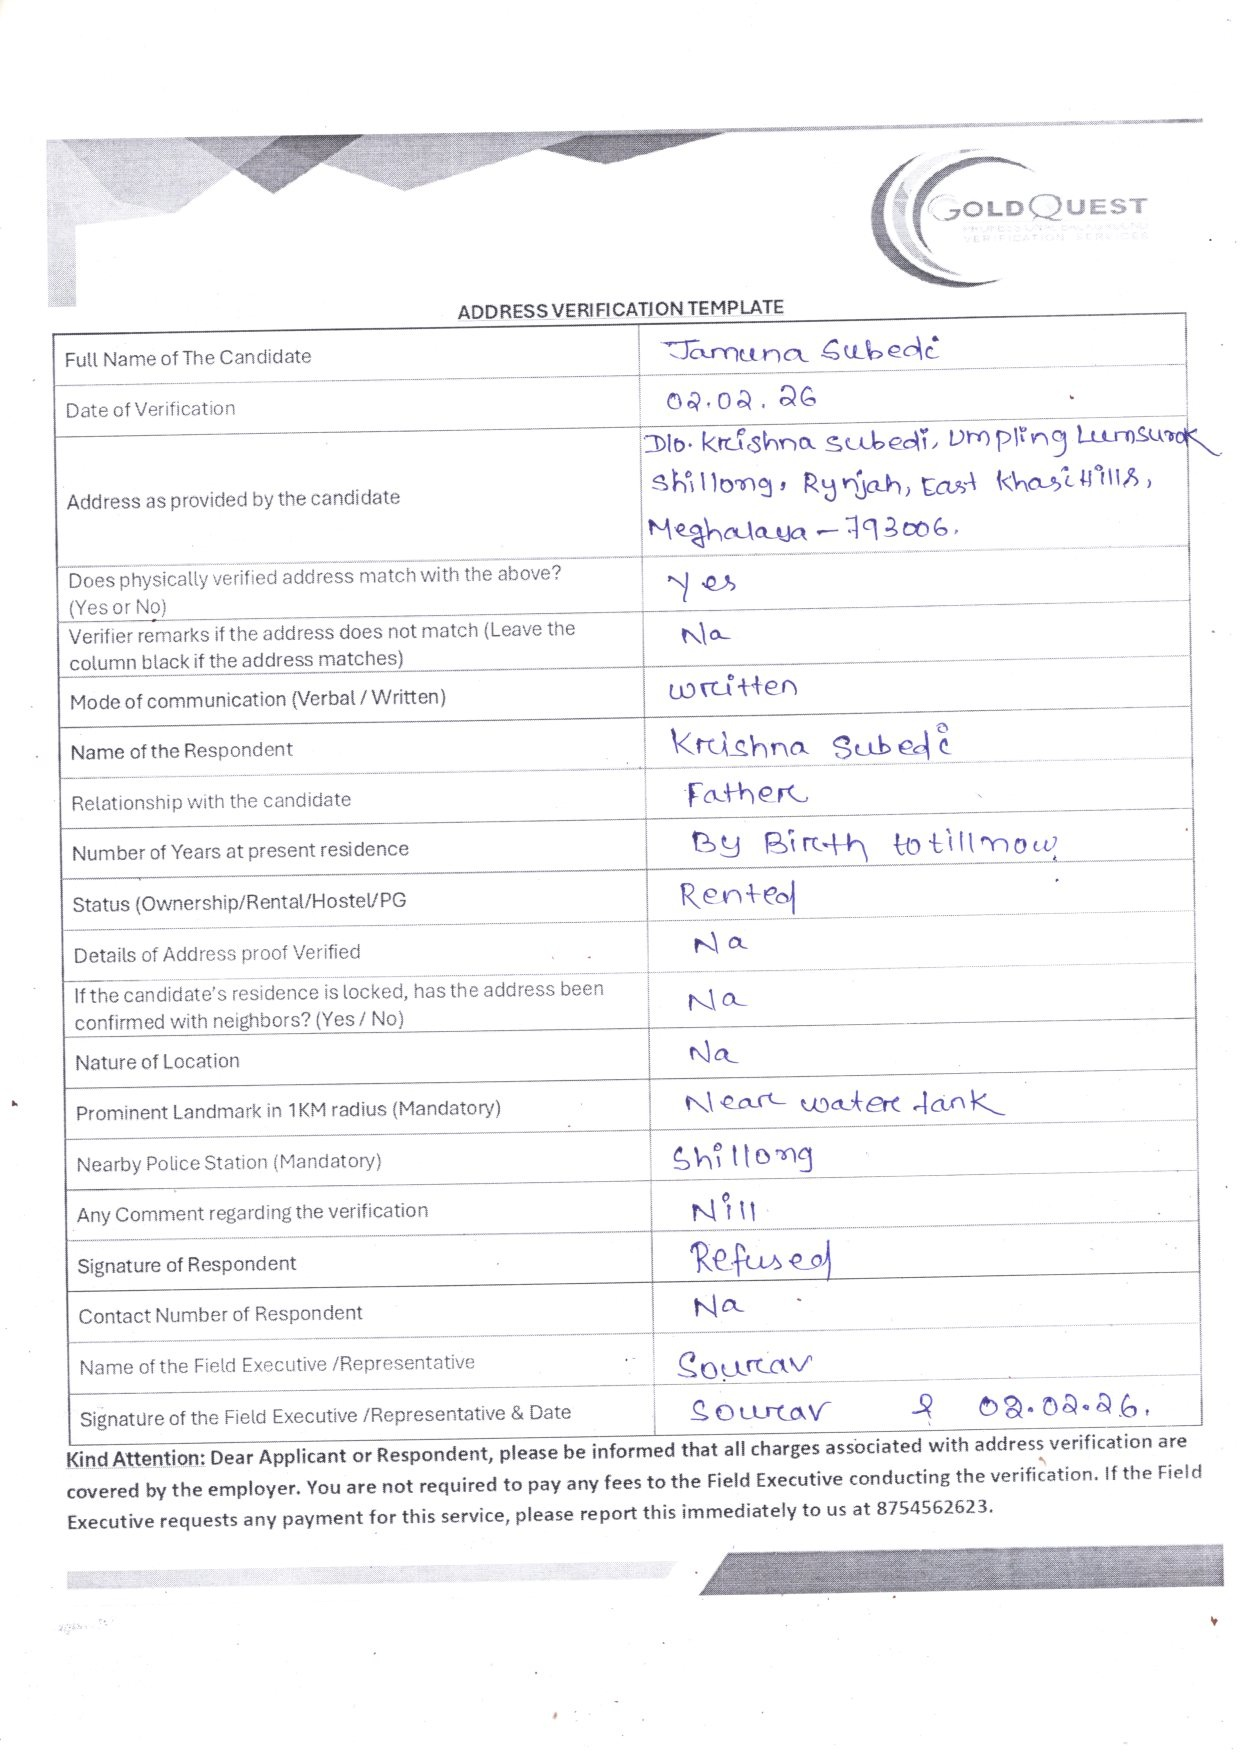 GOLDQUEST
VERIFICATION SERVICES
ADDRESS VERIFICATION TEMPLATE
Full Name of The Candidate Jamuna Subedi
Date of Verification 02.02.26
Address as provided by the candidate D/o. Krishna Subedi, Umpling Lumsurok
Shillong, Rynjah, East Khasi Hills,
Meghalaya - 793006.
Does physically verified address match with the above?
(Yes or No) Yes
Verifier remarks if the address does not match (Leave the
column black if the address matches) Na
Mode of communication (Verbal / Written) Written
Name of the Respondent Krishna Subedi
Relationship with the candidate Father
Number of Years at present residence By Birth to till now
Status (Ownership/Rental/Hostel/PG Rented
Details of Address proof Verified Na
If the candidate's residence is locked, has the address been
confirmed with neighbors? (Yes / No) Na
Nature of Location Na
Prominent Landmark in 1KM radius (Mandatory) Near water tank
Nearby Police Station (Mandatory) Shillong
Any Comment regarding the verification Nill
Signature of Respondent Refused
Contact Number of Respondent Na
Name of the Field Executive /Representative Sourav
Signature of the Field Executive /Representative & Date Sourav & 02.02.26.
Kind Attention: Dear Applicant or Respondent, please be informed that all charges associated with address verification are
covered by the employer. You are not required to pay any fees to the Field Executive conducting the verification. If the Field
Executive requests any payment for this service, please report this immediately to us at 8754562623.